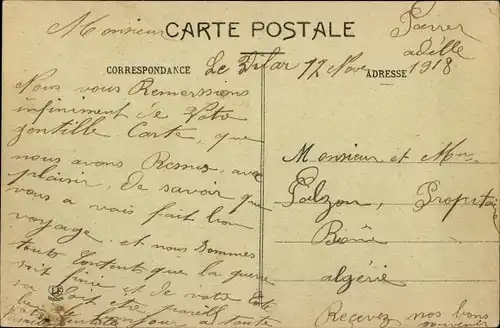 Monsieur
CARTE POSTALE
CORRESPONDANCE
Le Vilar 12 Nove 1918
ADRESSE
Nous vous Remerssions
infiniment de Votre
gentille Carte, que
nous avons Remus, avec
plaisir, de savoir que
vous a vais fait bon
voyage. et nous sommes
tout Contents que la guerre
soit finie et de votre Coté
Monsieur et Mme
Palzon, Propritai
Bône
algérie
Recevez nos bons